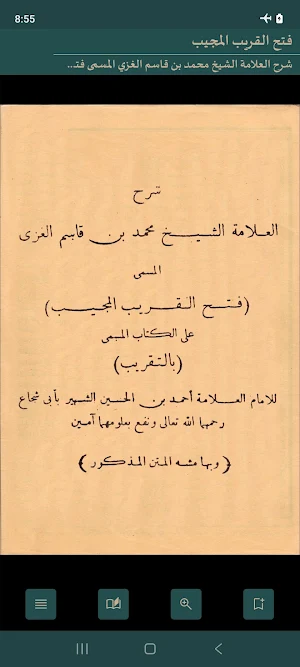 8:55
فتح القريب المجيب
شرح العلامة الشيخ محمد بن قاسم الغزي المسمى فتـ..
شرح
العلامة الشيخ محمد بن قاسم الغزى
المسمى
(فتح القريب المجيب)
على الكتاب المسمى
(بالتقريب)
للامام العلامة أحمد بن الحسين الشهير بأبى شجاع
رحمهما الله تعالى ونفع بعلومهما آمين
(وبهامشه المتن المذكور)